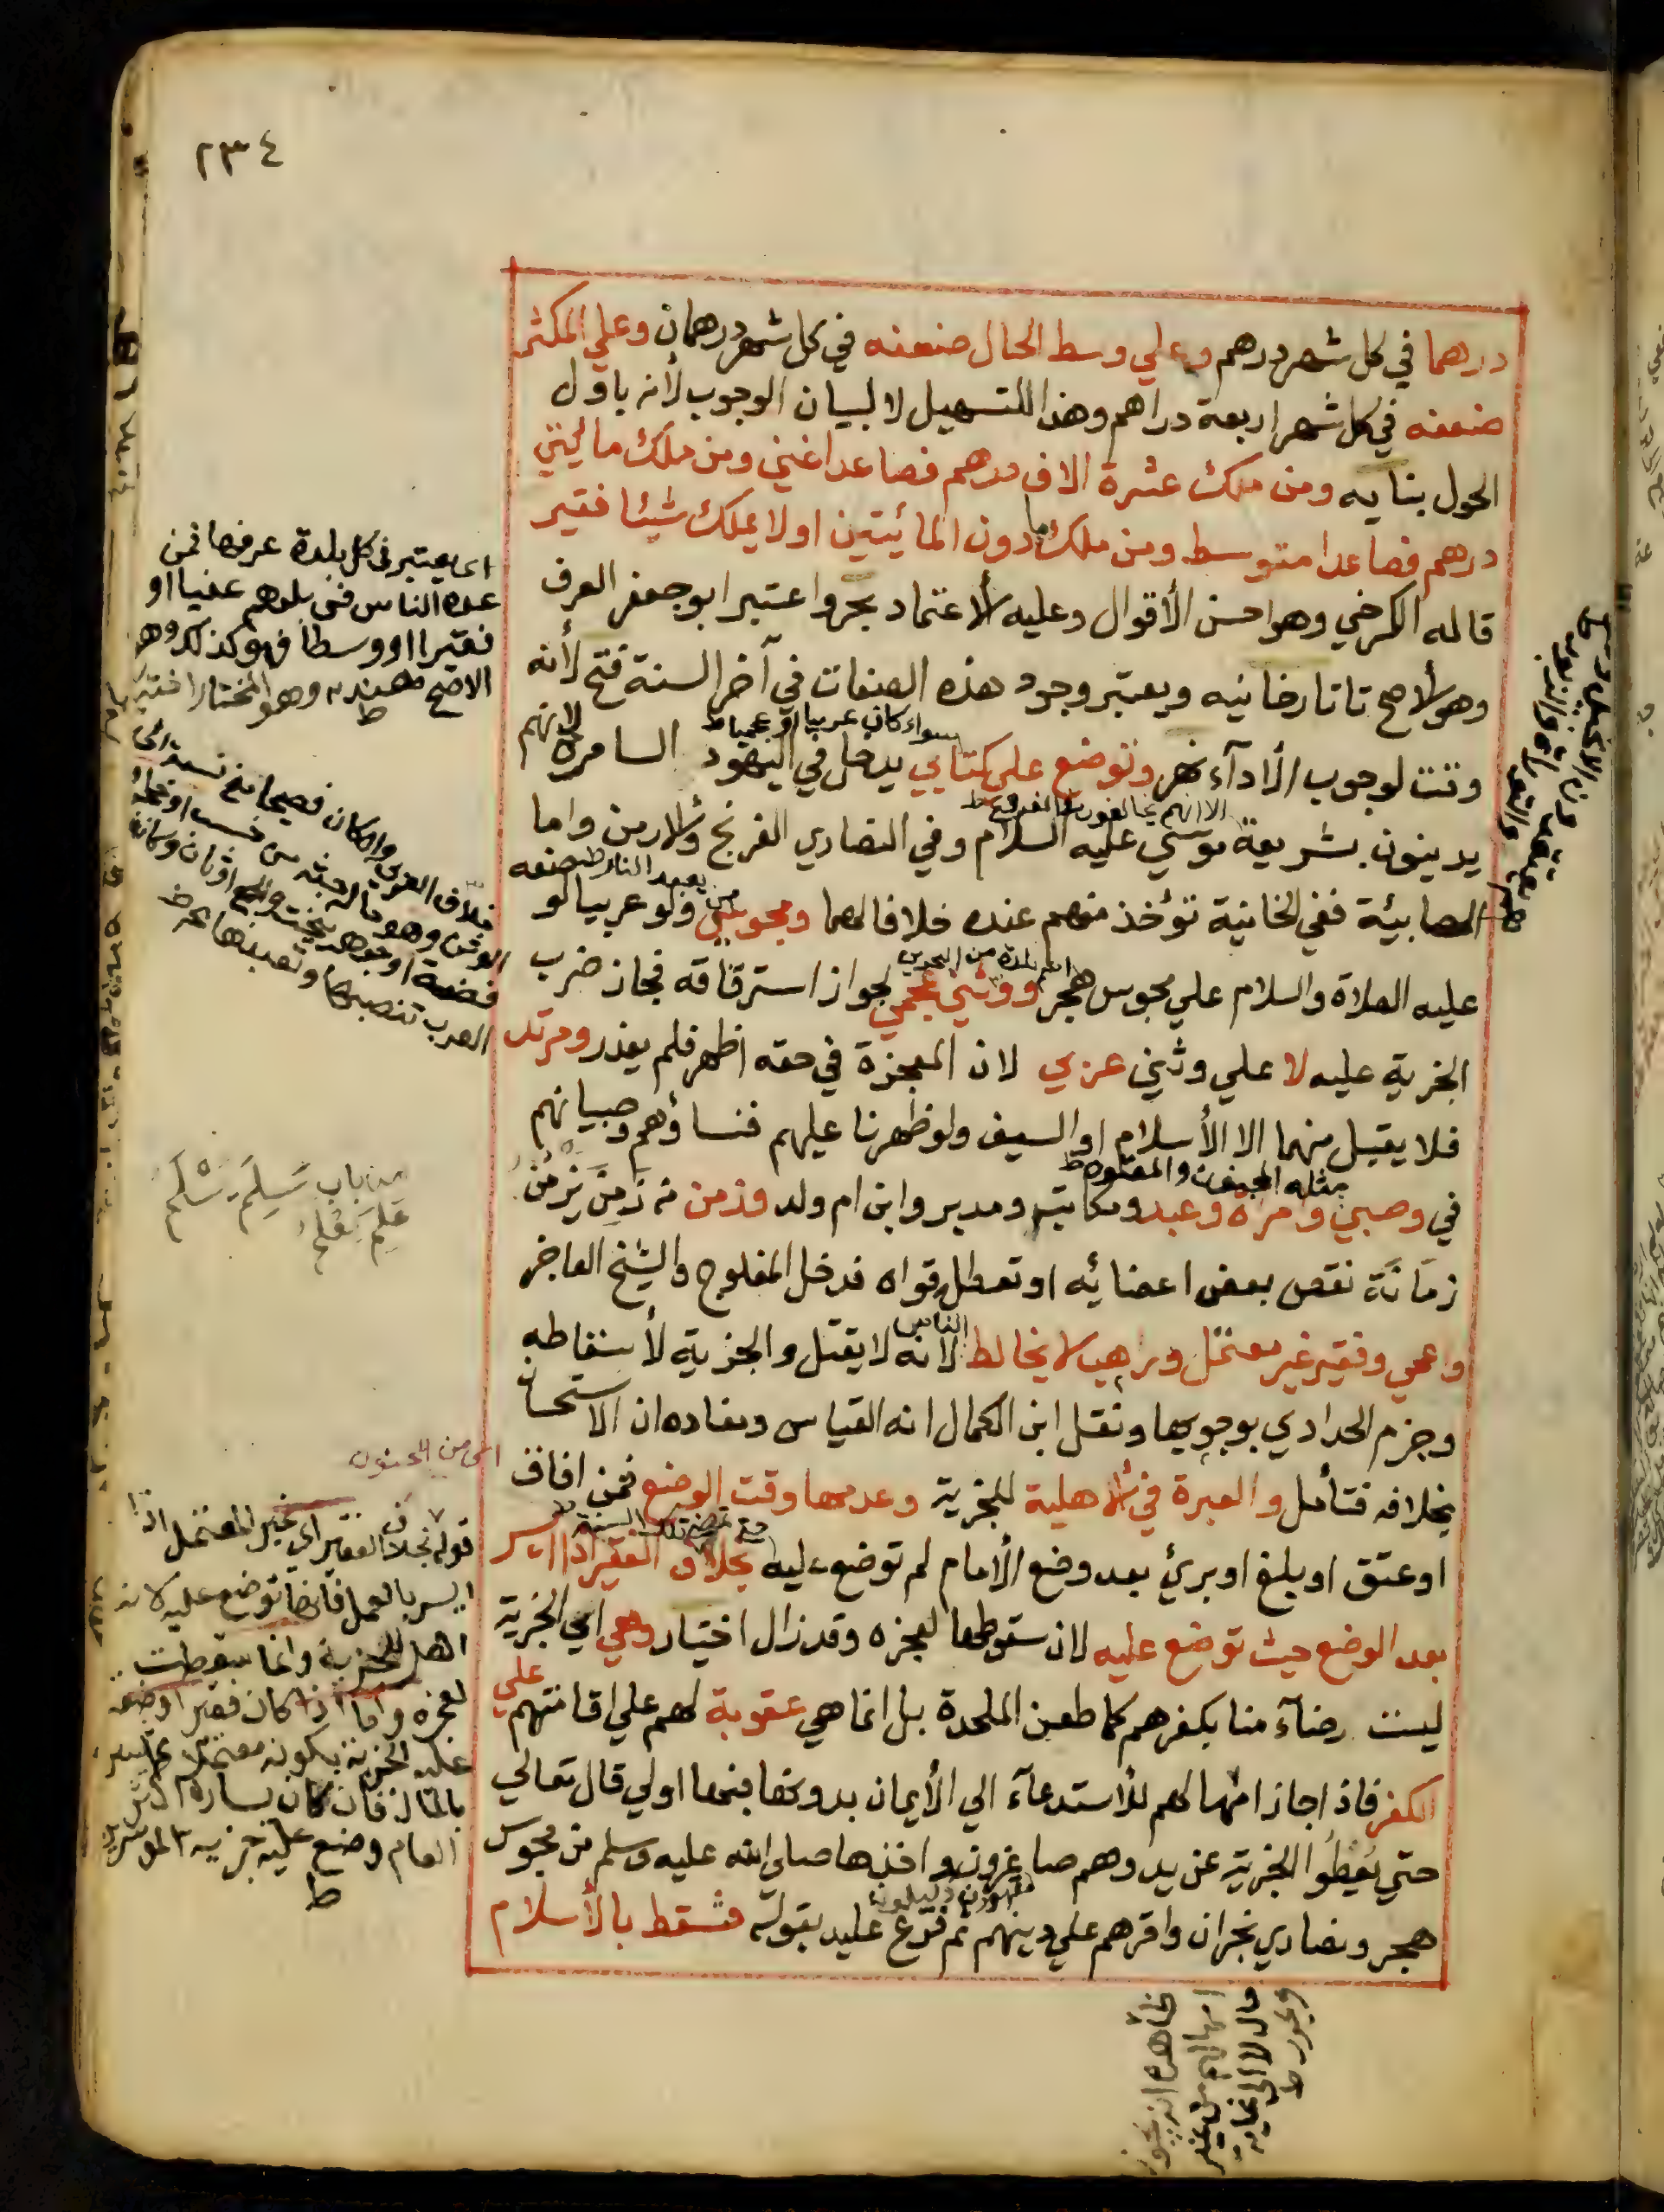 ٢٣٤
درهما في كل شهر درهم وعلي وسط الحال ضعفه في كل شهر درهمان وعلي المكثر
ضعفه في كل شهر اربعة دراهم وهذا للتسهيل لا لبيان الوجوب لأنه باول
الحول بنايه ومن ملك عشرة الاف درهم فصاعدا غني ومن ملك مائتي
درهم فصاعدا متوسط ومن ملك ما دون المائيتين او لا يملك شيئا فقير
قاله الكرخي وهو احسن الأقوال وعليه الأعتماد بحر واعتبر ابو جعفر العرف
وهو الأصح تاتارخانيه ويعتبر وجود هذه الصفات في آخر السنة فتح لأنه
سواء كان عربيا او عجميا ط
وقت لوجوب الأدآء نهر وتوضع علي كتابي يدخل في اليهود السامرة لانهم
الا انهم يخالفون في الفروع ط
يدينون بشريعة موسي عليه السلام وفي النصاري الفرنج والارمن واما
من يعبد النار ط
الصابيئة ففي الخانية تؤخذ منهم عنده خلافا لهما ومجوسي ولو عربيا لو ضعه
اسم بلدة من البحرين
عليه الصلاة والسلام علي مجوس هجر ووثني عجمي لجواز استرقاقه فجاز ضرب
الجزية عليه لا علي وثني عربي لان المعجزة في حقه اظهر فلم يعذر ومرتد
فلا يقبل منهما الا الأسلام او السيف ولو ظهرنا عليهم فنساؤهم وصبيانهم
مثله المجنون والمعتوه ط
في وصبي وامراة وعبد ومكاتب ومدبر وابن ام ولد وزمن من زَمِنَ يَزمَنُ
زمَانَة نقص بعض اعضائه او تعطل قواه فدخل المفلوج والشيخ العاجز
الناس
واعمي وفقير غير معتمل وراهب لا يخالط لانه لا يقتل والجزية لأسقاطه
وجزم الحدادي بوجوبها ونقل ابن الكمال انه القياس ومفاده ان الاستحسان
بخلافه فتأمل والعبرة في الأهلية للجزية وعدمها وقت الوضع فمن افاق
او عتق او بلغ او برئ بعد وضع الأمام لم توضع عليه بخلاف الفقير اذا ايسر
بعد الوضع حيث توضع عليه لان سقوطها لعجزه وقد زال اختيار وهي اي الجزية
ليست رضآء منا بكفرهم كما طعن الملحدة بل انما هي عقوبة لهم علي اقامتهم علي
الكفر فاذا جاز امهالهم للأستدعآء الي الأيمان بدونها فبها اولي قال تعالي
حتي يُعطُوا الجزية عن يد وهم صاغرون واخذها صلي الله عليه وسلم من مجوس
مقهورون ذليلون
هجر ونصاري نجران واقرهم علي دينهم ثم فرع عليه بقوله فتسقط بالأسلام
اي يعتبر في كل بلدة عرفها فمن
عده الناس في بلدهم غنيا او
فقيرا او وسطا فهو كذلك وهو
الاصح هنديه وهو المختار اختيار
ط
من باب سَلِمَ يَسْلَم
عَلِمَ يَعْلَمُ
اي من الجنون
قوله بخلاف الفقير اي غير المعتمل اذا
ايسر بالعمل فانها توضع عليه لانه
اهل للجزية وانما سقطت
لعجزه واما اذا كان فقيرا وضعت
عليه الجزية بكونه معتملا ثم ايسر
بالمال فان كان يساره اكثر
العام وضع عليه جزية الموسرين
ط
ظاهره انه يجوز
امهالهم من غير
مال لا الي غاية